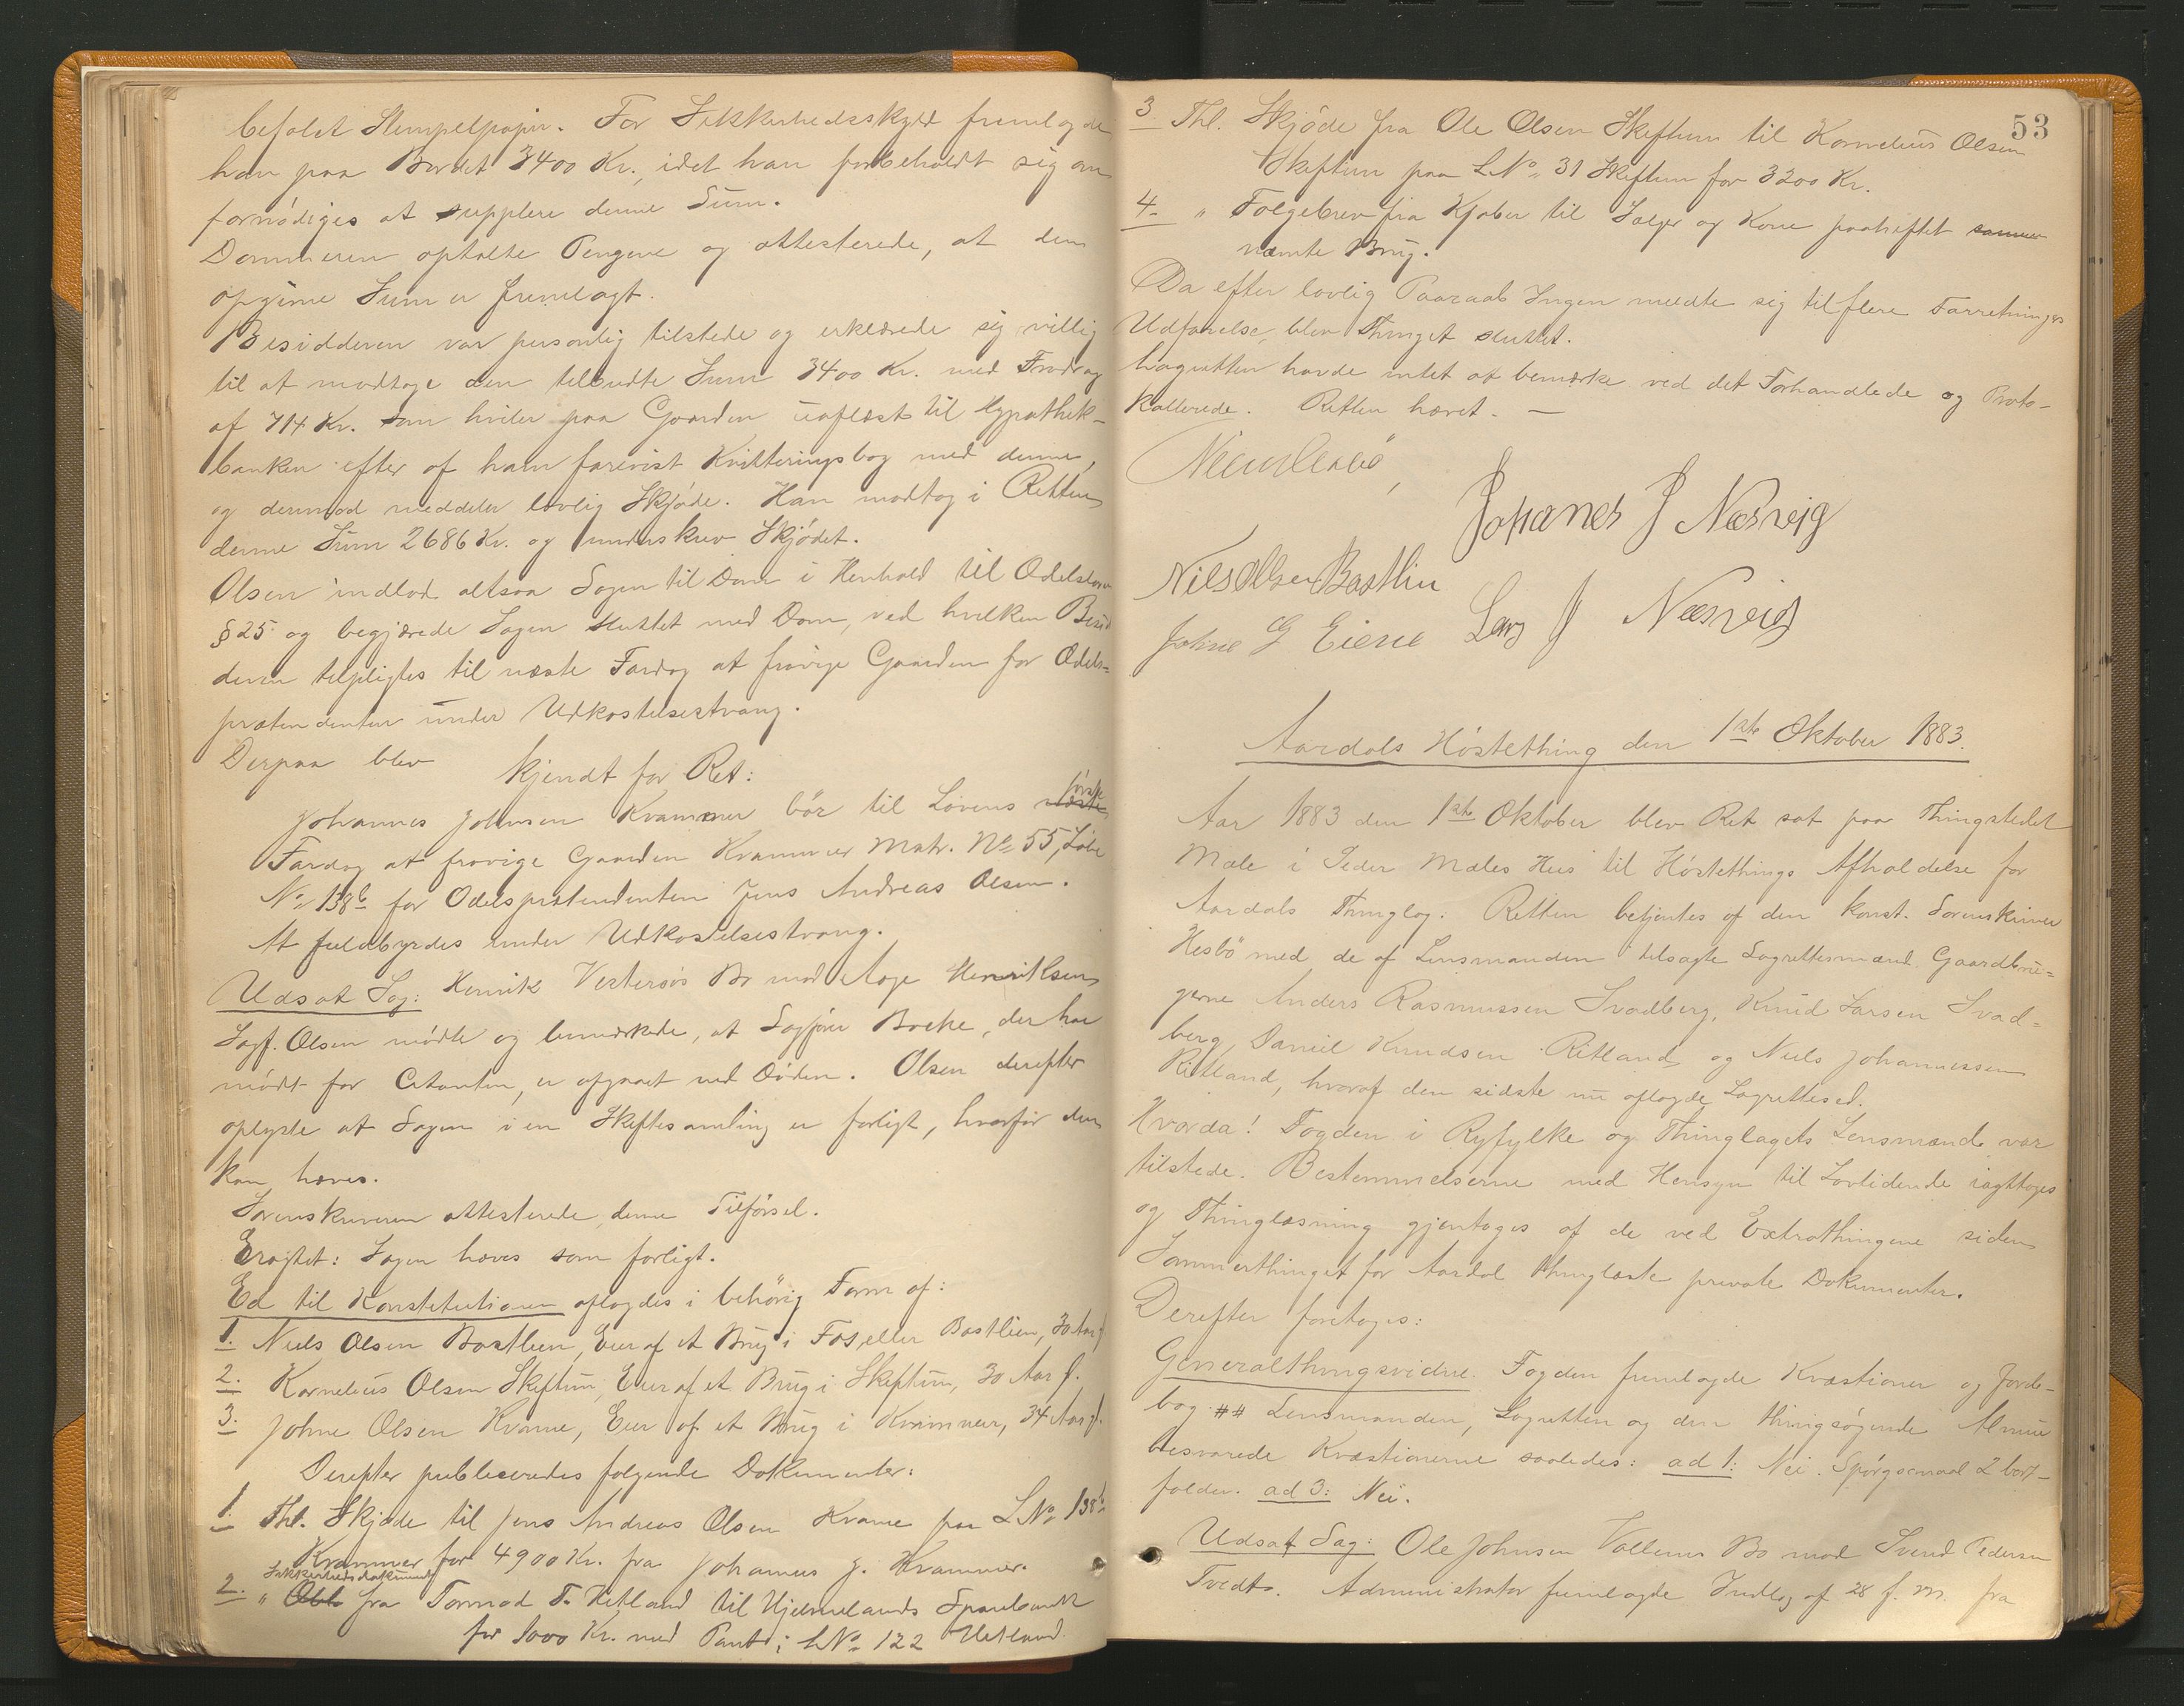 befalet Stempelpapir. For Sikkerhedsskyld fremlagde
han paa Bordet 3400 Kr., idet han forbeholdt sig om
fornödiges at supplere denne Sum.
Dommeren optalte Pengene og attesterede, at den
opgivne Sum er fremlagt.
Besidderen var personlig tilstede og erklærede sig villig
til at modtage den tilbudte Sum 3400 Kr. med Fradrag
af 714 Kr. som hviler paa Gaarden uaflöst til Hypothek-
banken efter af ham forevist Kvitteringsbog med denne,
og derimod meddeler lovlig Skjöde. Han modtog i Retten
denne Sum 2686 Kr. og underskrev Skjödet.
Olsen indlod altsaa Sagen til Dom i Henhold til Odelsloven
§ 25 og begjærede Sagen sluttet med Dom, ved hvilken Besid
deren tilpligtes til næste Fardag at fravige Gaarden for Odels-
prætendenten under Udkastelsestvang.
Derpaa blev kjendt for Ret:
Johannes Johnsen Kvammer bör til Lovens næste förste
Fardag at fravige Gaarden Kvammer Matr. No 55, Löbe
No 138b for Odelsprætendenten Jens Andreas Olsen.
At fuldbyrdes under Udkastelsestvang.
Udsat Sag: Henrik Vestersös Bo mod Aage Henriksen
Sagf. Olsen mödte og bemærkede, at Sagförer Bocke, der har
mödt for Citanten, er afgaaet ved Döden. Olsen derefter
oplyste at Sagen i en Skiftesamling er forligt, hvorfor den
kan hæves.
Sorenskriveren attesterede denne Tilförsel.
Eragtet: Sagen hæves som forligt.
Ed til Konstitutionen aflagdes i behörig Form af:
1. Niels Olsen Bastlien, Eier af et Brug i Fos eller Bastlien, 30 Aar g.
2. Kornelius Olsen Skiftun, Eier af et Brug i Skiftun, 30 Aar g.
3. Johne Olsen Kvame, Eier af et Brug i Kvammer, 34 Aar g.
Derefter publiceredes fölgende Dokumenter:
1. Thl. Skjöde til Jens Andreas Olsen Kvame paa LNo 138b
Kvammer for 4900 Kr. fra Johannes J. Kvammer.
Sikkerhedsdokument
2. " Obl. fra Tormod T. Hetland til Hjelmelands Sparebank
for 1000 Kr. med Pant i LNo 122 Hetland.
53
3 Thl. Skjöde fra Ole Olsen Skiftun til Kornelius Olsen
Skiftun paa LNo 31 Skiftun for 3200 Kr.
4. " Fölgebrev fra Kjöber til Sælger og Kone paaheftet samme
nævnte Brug.
Da efter lovlig Paaraab Ingen meldte sig til flere Forretningers
Udförelse, blev Thinget sluttet.
Lagretten havde intet at bemærke ved det Forhandlede og Proto-
kollerede. Retten hævet. —
Johanes J Næsveig
Nils Olsen Bastlin
Johne G Eiene Lars J Næsveig
Aardals Höstething den 1ste Oktober 1883.
Aar 1883 den 1ste Oktober blev Ret sat paa Thingstedet
Mæle i Peder Mæles Hus til Höstethings Afholdelse for
Aardals Thinglag. Retten betjentes af den konst. Sorenskriver
Hesbö med de af Lensmanden tilsagte Lagrettesmænd Gaardbru-
gerne Anders Rasmussen Svadberg, Knud Larsen Svad-
berg, Daniel Knudsen Ritland og Niels Johannessen
Ritland, hvoraf den sidste nu aflagde Lagrettesed.
Hvorda! Fogden i Ryfylke og Thinglagets Lensmand var
tilstede. Bestemmelserne med Hensyn til Lovtidende iagttages
og Thinglæsning gjentages af de ved Extrathingene siden
Sommerthinget for Aardal thinglæste private Dokumenter.
Derefter foretoges:
Generalthingsvidne. Fogden fremlagde Kvæstioner og Jorde-
bog ## Lensmanden, Lagretten og den thingsögende Almue
besvarede Kvæstionerne saaledes: ad 1: Nei. Spörgsmaal 2 bort-
falder. ad 3: Nei.
Udsat Sag: Ole Johnsen Valheims Bo mod Svend Pedersen
Tvedt. Administrator fremlagde Indlæg af 28 f. M. fra